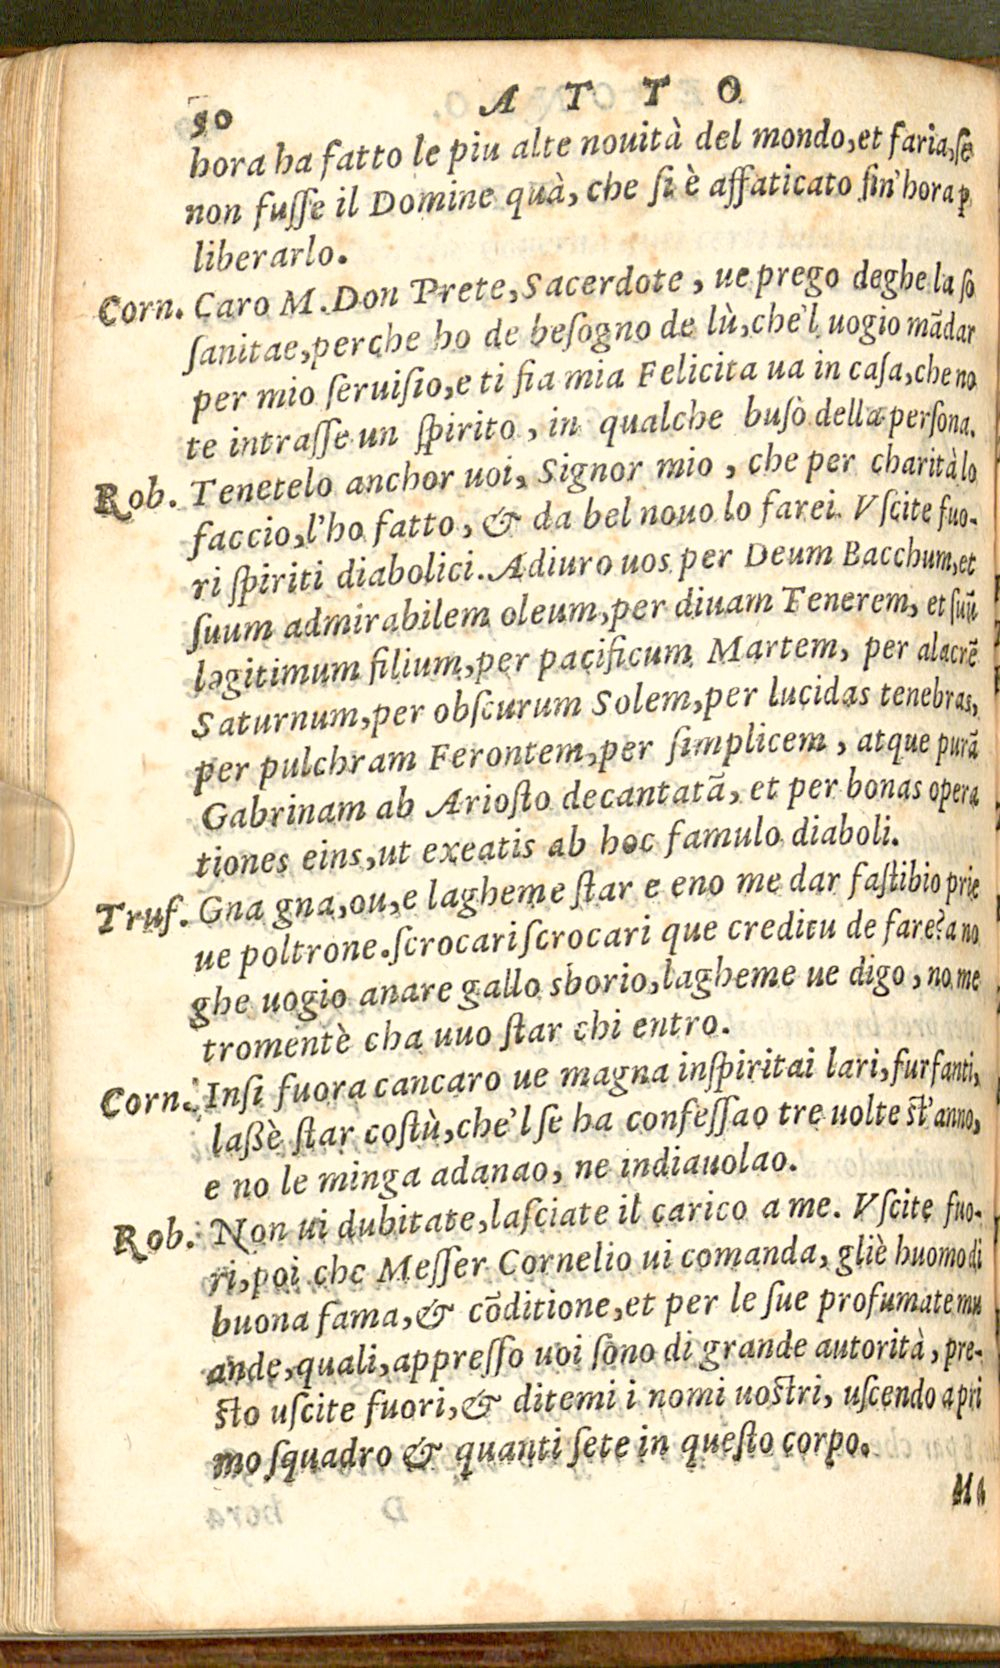 50 ATTO
hora ha fatto le piu alte nouità del mondo,et faria,ſe
non fuſſe il Domine quà, che ſi è affaticato ſin'hora ꝑ
liberarlo.
Corn. Caro M. Don Prete, Sacerdote, ue prego deghe la ſo
ſanitae, perche ho de beſogno de lù, che'l uogio mādar
per mio ſeruiſio, e ti fia mia Felicita ua in caſa, che no
te intraſſe un ſpirito, in qualche buſò della perſona.
Rob. Tenetelo anchor uoi, Signor mio, che per charità lo
faccio, l'ho fatto, & da bel nouo lo farei. Vſcite fuo-
ri ſpiriti diabolici. Adiuro uos per Deum Bacchum, et
ſuum admirabilem oleum, per diuam Tenerem, et ſuū
legitimum filium, per pacificum Martem, per alacrē
Saturnum, per obſcurum Solem, per lucidas tenebras,
per pulchram Ferontem, per ſimplicem, atque purā
Gabrinam ab Arioſto decantatā, et per bonas opera
tiones eins, ut exeatis ab hoc famulo diaboli.
Truf. Gna gna, ou, e lagheme ſtar e eno me dar faſtibio prie
ue poltrone. ſcrocari ſcrocari que creditu de fare? a no
ghe uogio anare gallo sborio, lagheme ue digo, no me
tromentè cha uuo ſtar chi entro.
Corn. Inſi fuora cancaro ue magna inſpiritai lari, furfanti,
laßè ſtar coſtù, che'l ſe ha confeſſao tre uolte ſt'anno,
e no le minga adanao, ne indiauolao.
Rob. Non ui dubitate, laſciate il carico a me. Vſcite fuo-
ri, poi che Meſſer Cornelio ui comanda, gliè huomo di
buona fama, & cōditione, et per le ſue profumate mu
ande, quali, appreſſo uoi ſono di grande autorità, pre-
ſto uſcite fuori, & ditemi i nomi uoſtri, uſcendo a pri
mo ſquadro & quanti ſete in queſto corpo.
Ma